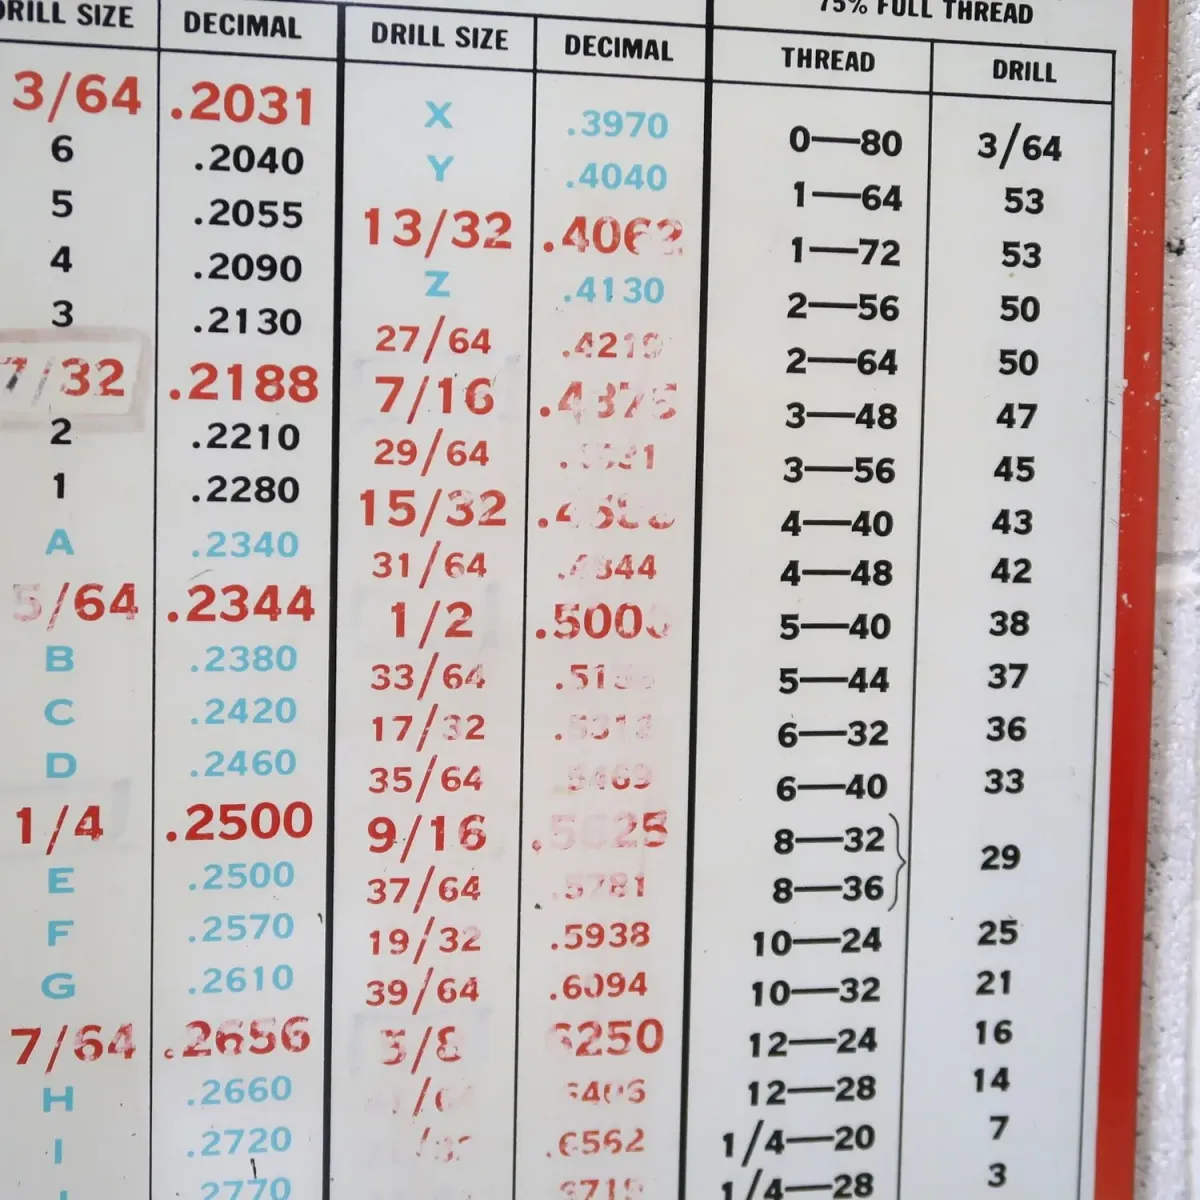 DRILL SIZE DECIMAL
3/64 .2031
6 .2040
5 .2055
4 .2090
3 .2130
7/32 .2188
2 .2210
1 .2280
A .2340
5/64 .2344
B .2380
C .2420
D .2460
1/4 .2500
E .2500
F .2570
G .2610
7/64 .2656
H .2660
I .2720
.2770
DRILL SIZE DECIMAL
X .3970
Y .4040
13/32 .4062
Z .4130
27/64 .4219
7/16 .4375
29/64
15/32
31/64 .4844
1/2 .5000
33/64
17/32 .5312
35/64 .5469
9/16 .5625
37/64 .5781
19/32 .5938
39/64 .6094
5/8 .6250
.6562
75% FULL THREAD
THREAD DRILL
0—80 3/64
1—64 53
1—72 53
2—56 50
2—64 50
3—48 47
3—56 45
4—40 43
4—48 42
5—40 38
5—44 37
6—32 36
6—40 33
8—32
8—36 29
10—24 25
10—32 21
12—24 16
12—28 14
1/4—20 7
1/4—28 3